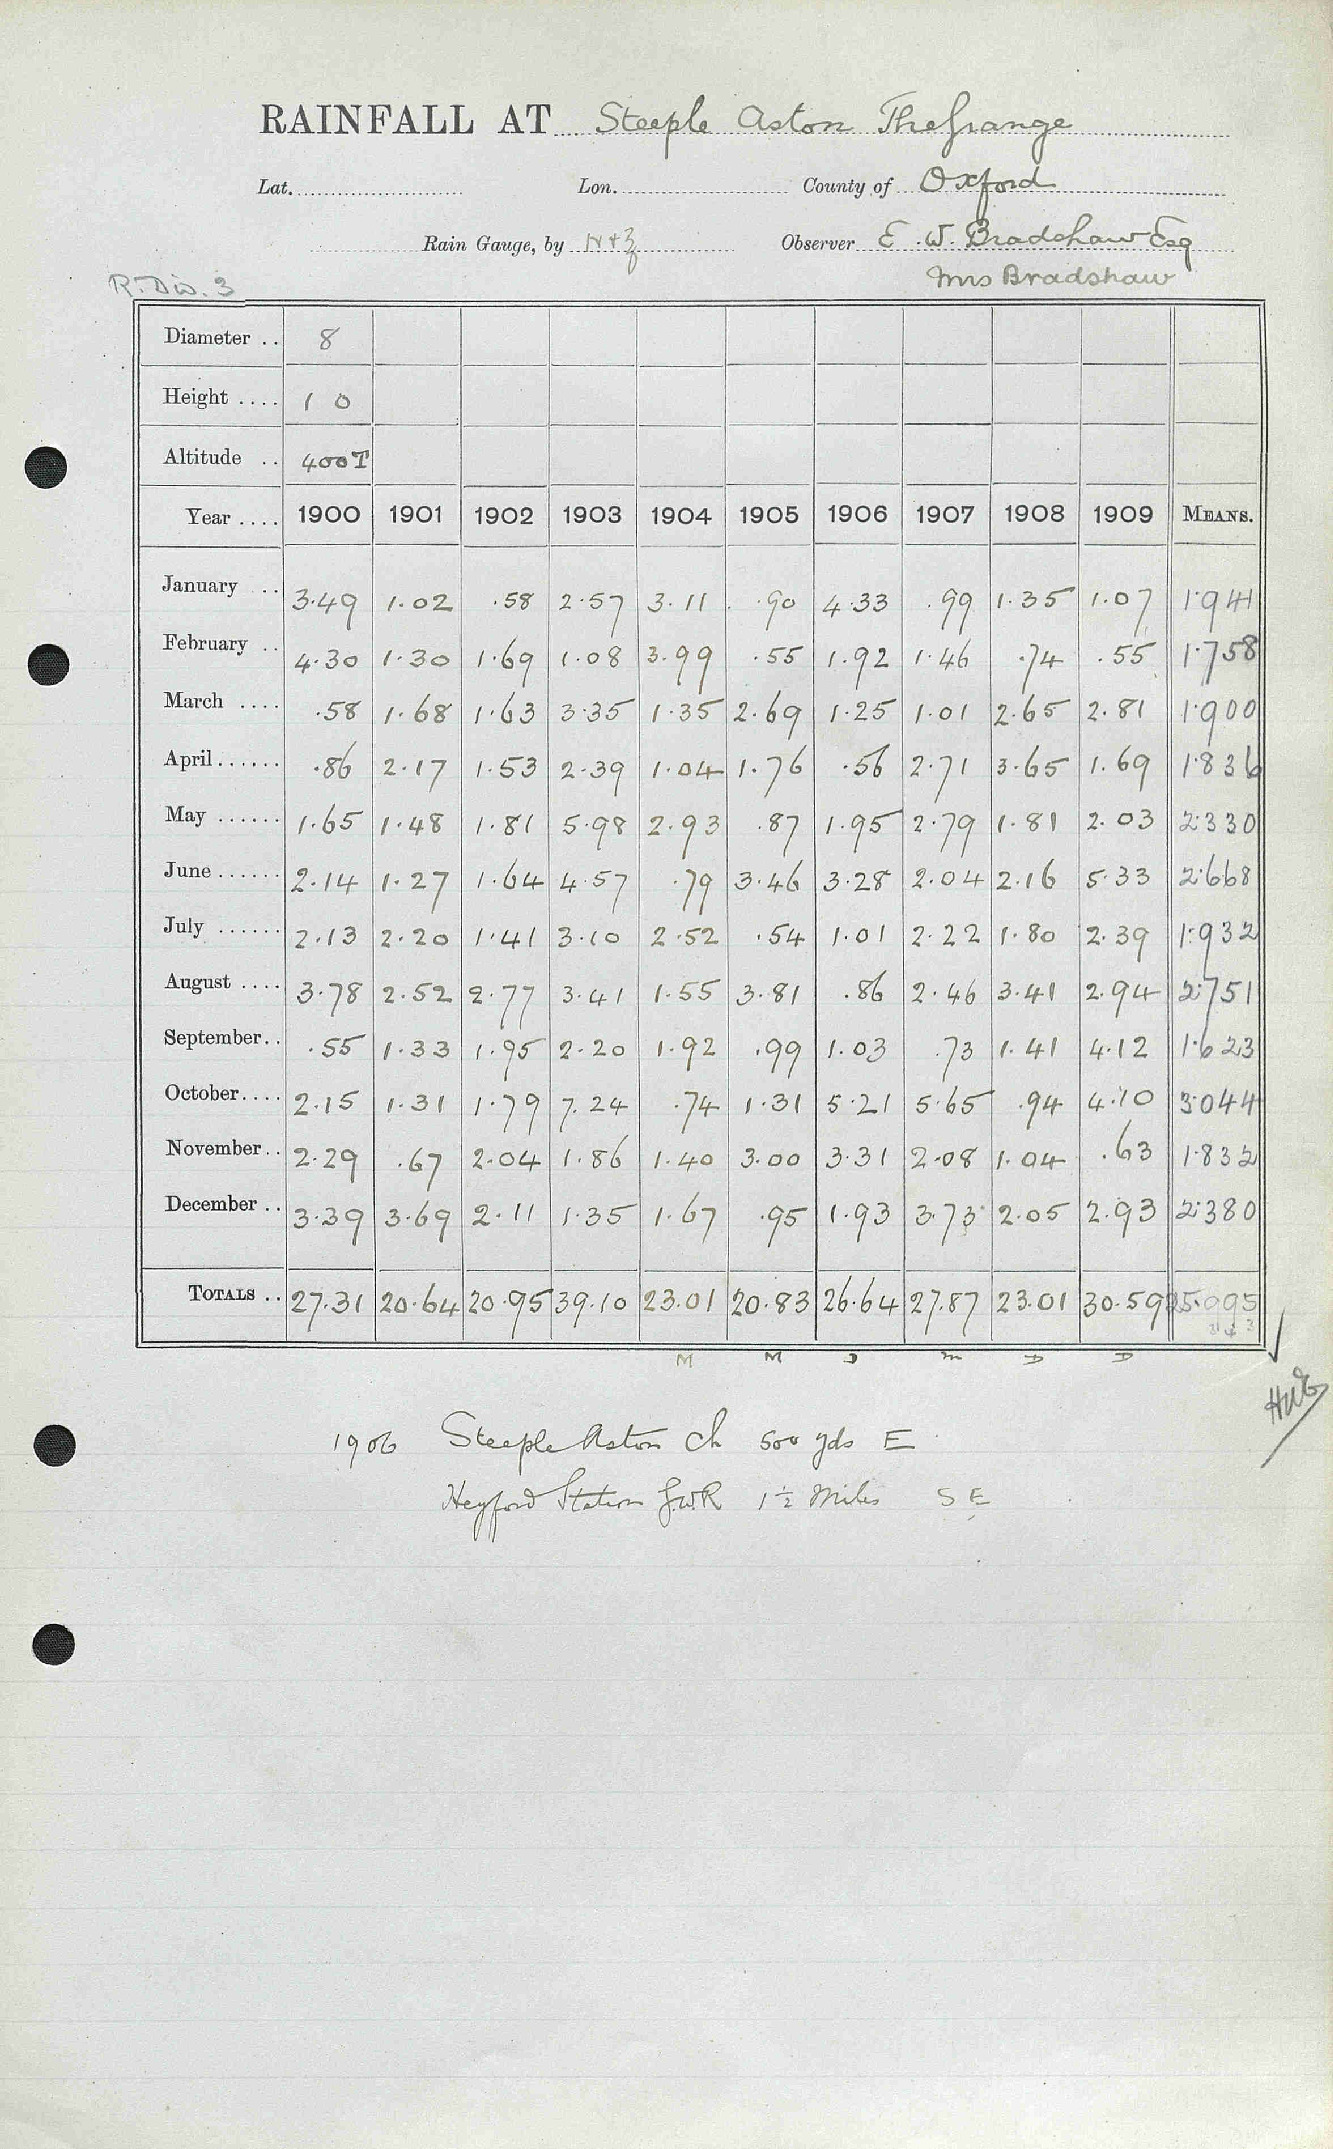 RAINFALL AT Steeple Aston The Grange
Lat. Lon. County of Oxford
Rain Gauge, by N+Z Observer E. W. Bradshaw Esq
R. Div. 3 Mrs Bradshaw
Diameter .. 8
Height .... 1 0
Altitude .. 400T
Year .... 1900 1901 1902 1903 1904 1905 1906 1907 1908 1909 MEANS.
January .. 3.49 1.02 .58 2.57 3.11 .90 4.33 .99 1.35 1.07 1.941
February .. 4.30 1.30 1.69 1.08 3.99 .55 1.92 1.46 .74 .55 1.758
March .... .58 1.68 1.63 3.35 1.35 2.69 1.25 1.01 2.65 2.81 1.900
April ...... .86 2.17 1.53 2.39 1.04 1.76 .56 2.71 3.65 1.69 1.836
May ...... 1.65 1.48 1.81 5.98 2.93 .87 1.95 2.79 1.81 2.03 2.330
June ...... 2.14 1.27 1.64 4.57 .79 3.46 3.28 2.04 2.16 5.33 2.668
July ...... 2.13 2.20 1.41 3.10 2.52 .54 1.01 2.22 1.80 2.39 1.932
August .... 3.78 2.52 2.77 3.41 1.55 3.81 .86 2.46 3.41 2.94 2.751
September .. .55 1.33 1.95 2.20 1.92 .99 1.03 .73 1.41 4.12 1.623
October .... 2.15 1.31 1.79 7.24 .74 1.31 5.21 5.65 .94 4.10 3.044
November .. 2.29 .67 2.04 1.86 1.40 3.00 3.31 2.08 1.04 .63 1.832
December .. 3.39 3.69 2.11 1.35 1.67 .95 1.93 3.73 2.05 2.93 2.380
TOTALS .. 27.31 20.64 20.95 39.10 23.01 20.83 26.64 27.87 23.01 30.59 25.995
M M D m D D
1906 Steeple Aston Ch 500 yds E
Heyford Station G.W.R 1½ Miles S E